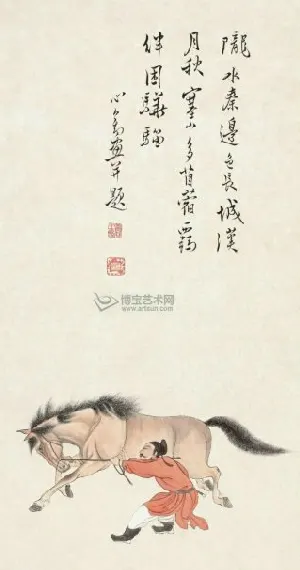 隴水秦邊色長城漢
月秋寒山多苜蓿羈
伴困驊騮
心畬畫并題
博宝艺术网
www.artsun.com